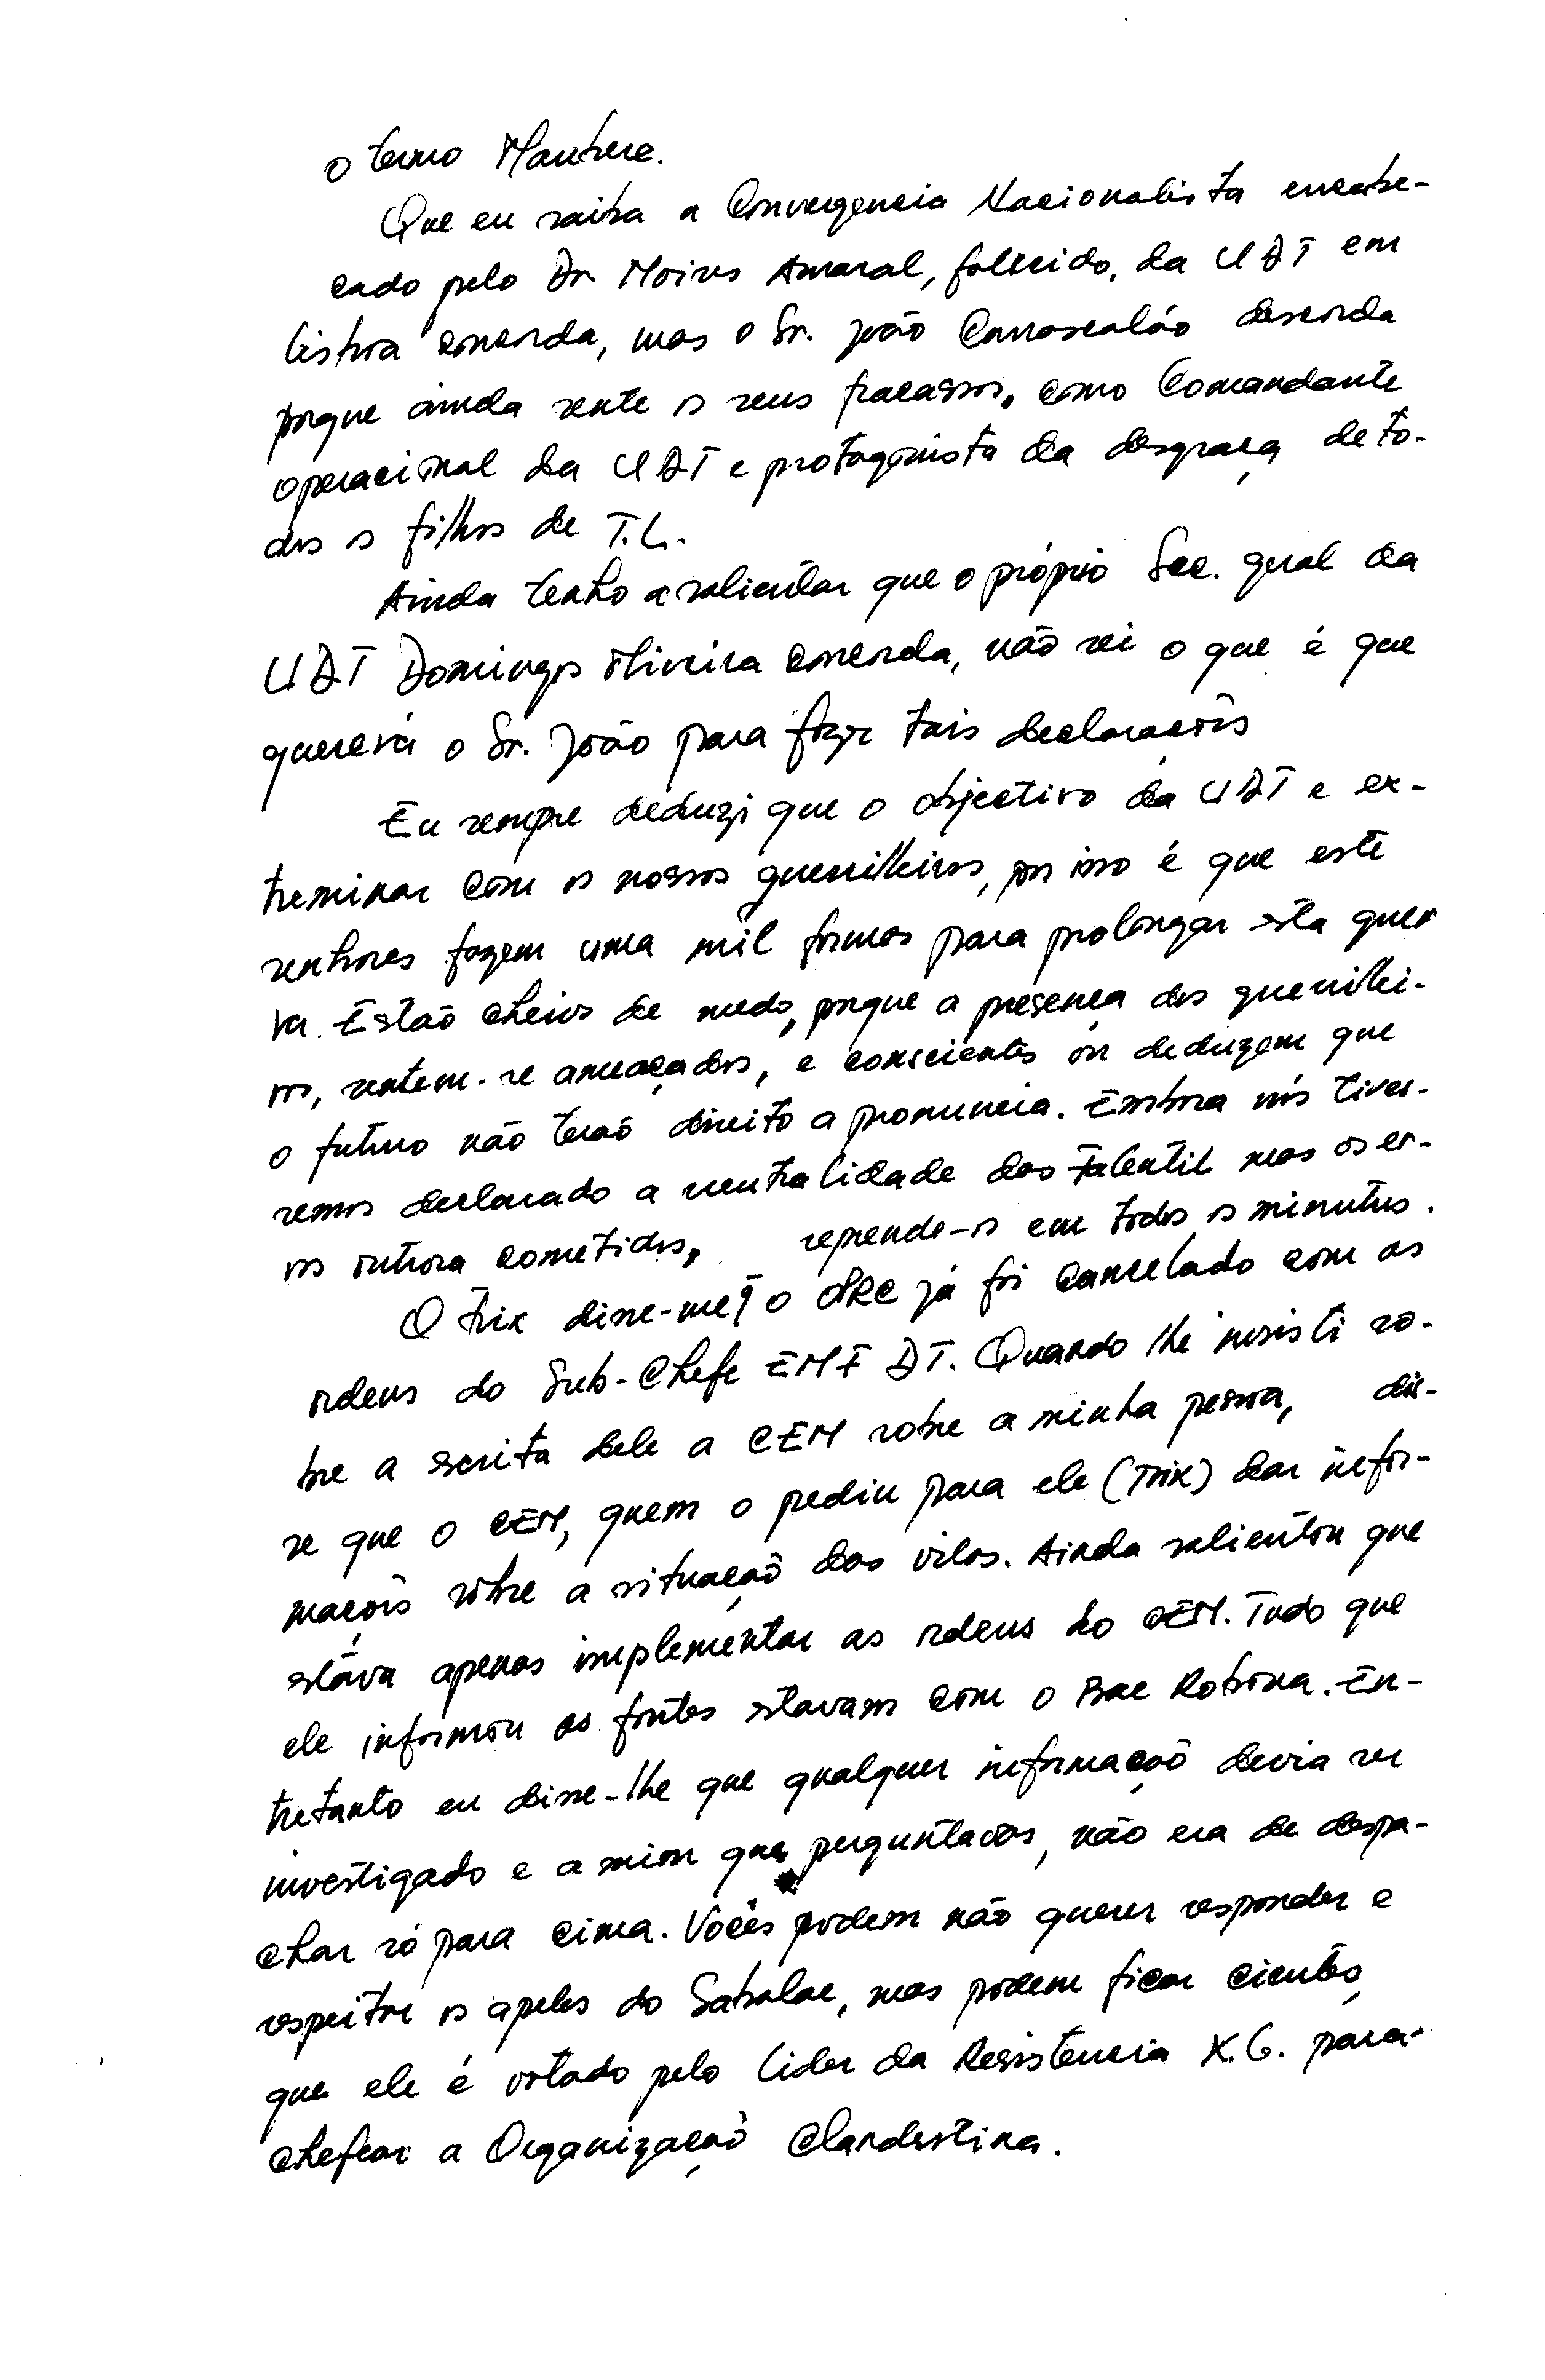 o termo Maubere.
Que eu saiba a Convergencia Nacionalista encabe-
çado pelo Dr. Moises Amaral, falecido, da UDT em
Lisboa concorda, mas o Sr. João Carrascalão descorda
porque ainda sente os seus fracassos, como Comandante
operacional da UDT e protagonista da desgraça de to-
dos os filhos de T.L.
Ainda tenho a salientar que o próprio Sec. geral da
UDT Domingos Oliveira concorda, não sei o que é que
quererá o Sr. João para fazer tais declaraçõis
Eu sempre deduzi que o objectivo da UDT e ex-
treminar com os nossos guerrilheiros, por isso é que este
senhores fazem uma mil formas para prolongar esta guer
ra. Estaõ cheios de medo, porque a presença dos guerrilhei-
ros, sentem-se ameaçados, e conscientes ou deduzem que
o futuro não teraõ direito a pronuncia. Embora nós tives-
semos declarado a neutralidade das Falentil mas os er-
ros outrora cometidos, reprende-os em todos os minutos.
O Trix disse-me q̃ o ORC já foi cancelado com as
ordens do Sub-Chefe EMF DT. Quando lhe insisti so-
bre a escrita dele a CEM sobre a minha pessoa, dis-
se que o CEM, quem o pediu para ele (Trix) dar infor-
maçois sobre a situaçaõ das vilas. Ainda salientou que
estáva apenas implementar as ordens do CEM. Tudo que
ele informou as fontes estavam com o Bac Robona. En-
tretanto eu disse-lhe que qualquer informaçaõ devia ser
investigado e a mim que perguntados, não era de despa-
char só para cima. Vocês podem não querer responder e
respeitar os apelos do Sabalae, mas podem ficar cientes,
que ele é votado pelo Lider da Resistencia X.G. para
chefiar a Organizaçaõ Clandestina.